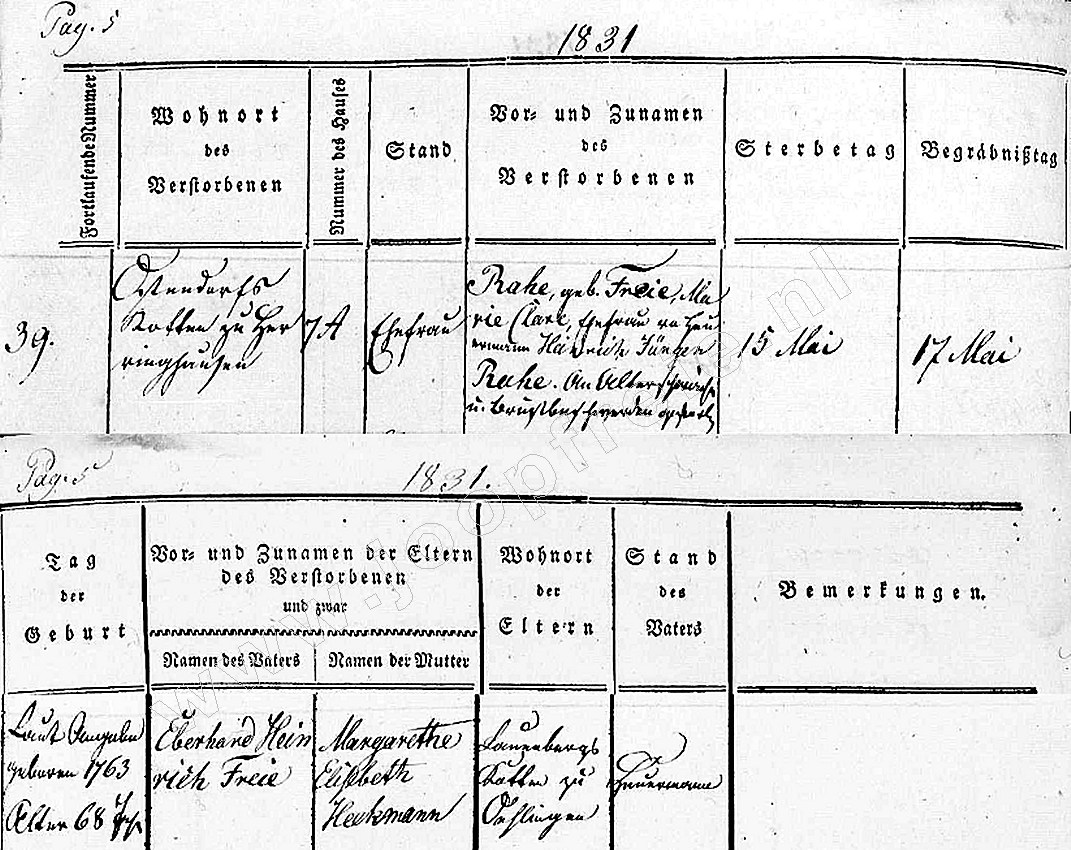 Pag. 5
1831
Fortlaufende Nummer
Wohnort
des
Verstorbenen
Nummer des Hauses
Stand
Vor- und Zunamen
des
Verstorbenen
Sterbetag
Begräbnißtag
39.
Ostendorfs
Kotten zu Her
ringhausen
7A
Ehefrau
Rahe, geb. Freie, Ma
rie Clare, Ehefrau vo Heu
ermann Heinrich Jürgen
Rahe. An Altersschwäche
u. Brustbeschwerden
15 Mai
17 Mai
Pag. 5
1831.
Tag
der
Geburt
Vor- und Zunamen der Eltern
des Verstorbenen
und zwar
Namen des Vaters
Namen der Mutter
Wohnort
der
Eltern
Stand
des
Vaters
Bemerkungen.
Laut Angabe
geboren 1763
Alter 68 Jhr
Eberhard Hein
rich Freie
Margarethe
Elisbeth
Heckmann
Kotten zu
Oehlingen
Heuermann
www.joopfreye.nl